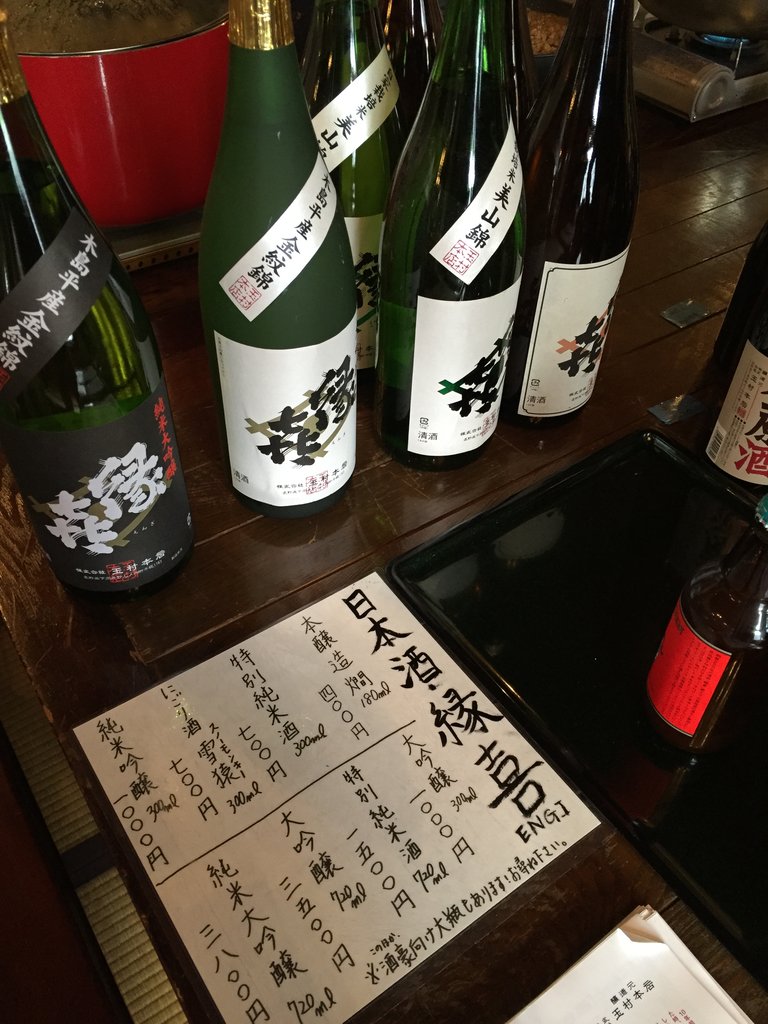 木島平産金紋錦
純米大吟醸
縁㐂
えんぎ
株式会社玉村本店
木島平産金紋錦
玉村本店
縁㐂
清酒
株式会社玉村本店
栽培米美山錦
栽培米美山錦
玉村本店
㐂
清酒
株式会社玉村本店
㐂
清酒
酒
日本酒・縁喜
ENGI
本醸造燗 180ml
四〇〇円
特別純米酒 300ml
七〇〇円
にごり酒 雪猿 300ml
スノーモンキー
七〇〇円
純米吟醸 300ml
一〇〇〇円
大吟醸 300ml
一〇〇〇円
特別純米酒 720ml
一五〇〇円
大吟醸 720ml
三五〇〇円
純米大吟醸 720ml
三八〇〇円
※酒豪向け大瓶もあります!お尋ね下さい。
醸造元
玉村本店